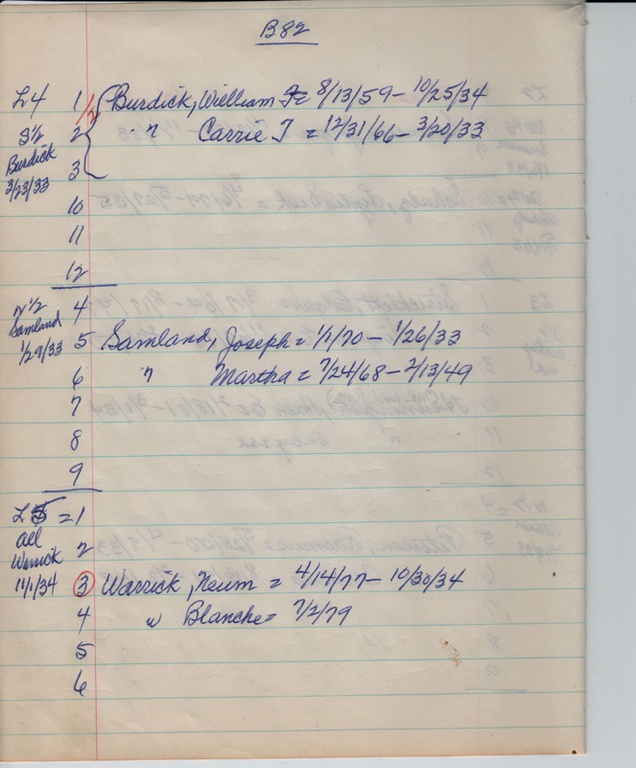 B82
L4 1 1/2 Burdick, William F = 8/13/59 - 10/25/34
S 1/2 2 " Carrie T = 12/31/66 - 3/20/33
Burdick 3
3/23/33
10
11
12
N 1/2 4
Samland
1/29/33 5 Samland, Joseph = 1/1/70 - 1/26/33
6 " Martha = 7/24/68 - 2/13/49
7
8
9
L5 = 1
all
Warrick 2
11/1/34 3 Warrick, Neum = 4/14/77 - 10/30/34
4 " Blanche = 7/2/79
5
6